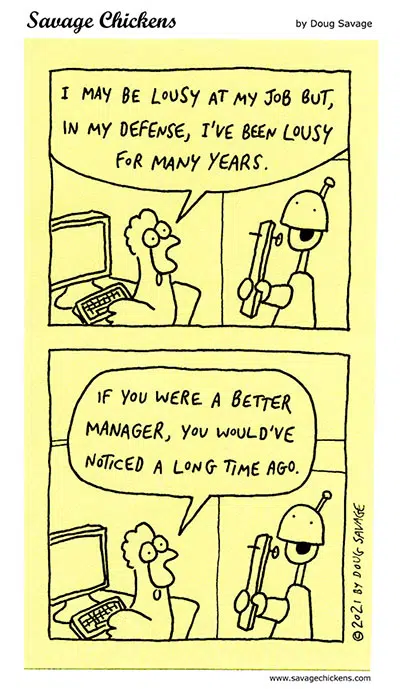 Savage Chickens
by Doug Savage
I MAY BE LOUSY AT MY JOB BUT,
IN MY DEFENSE, I'VE BEEN LOUSY
FOR MANY YEARS.
IF YOU WERE A BETTER
MANAGER, YOU WOULD'VE
NOTICED A LONG TIME AGO.
© 2021 BY DOUG SAVAGE
www.savagechickens.com